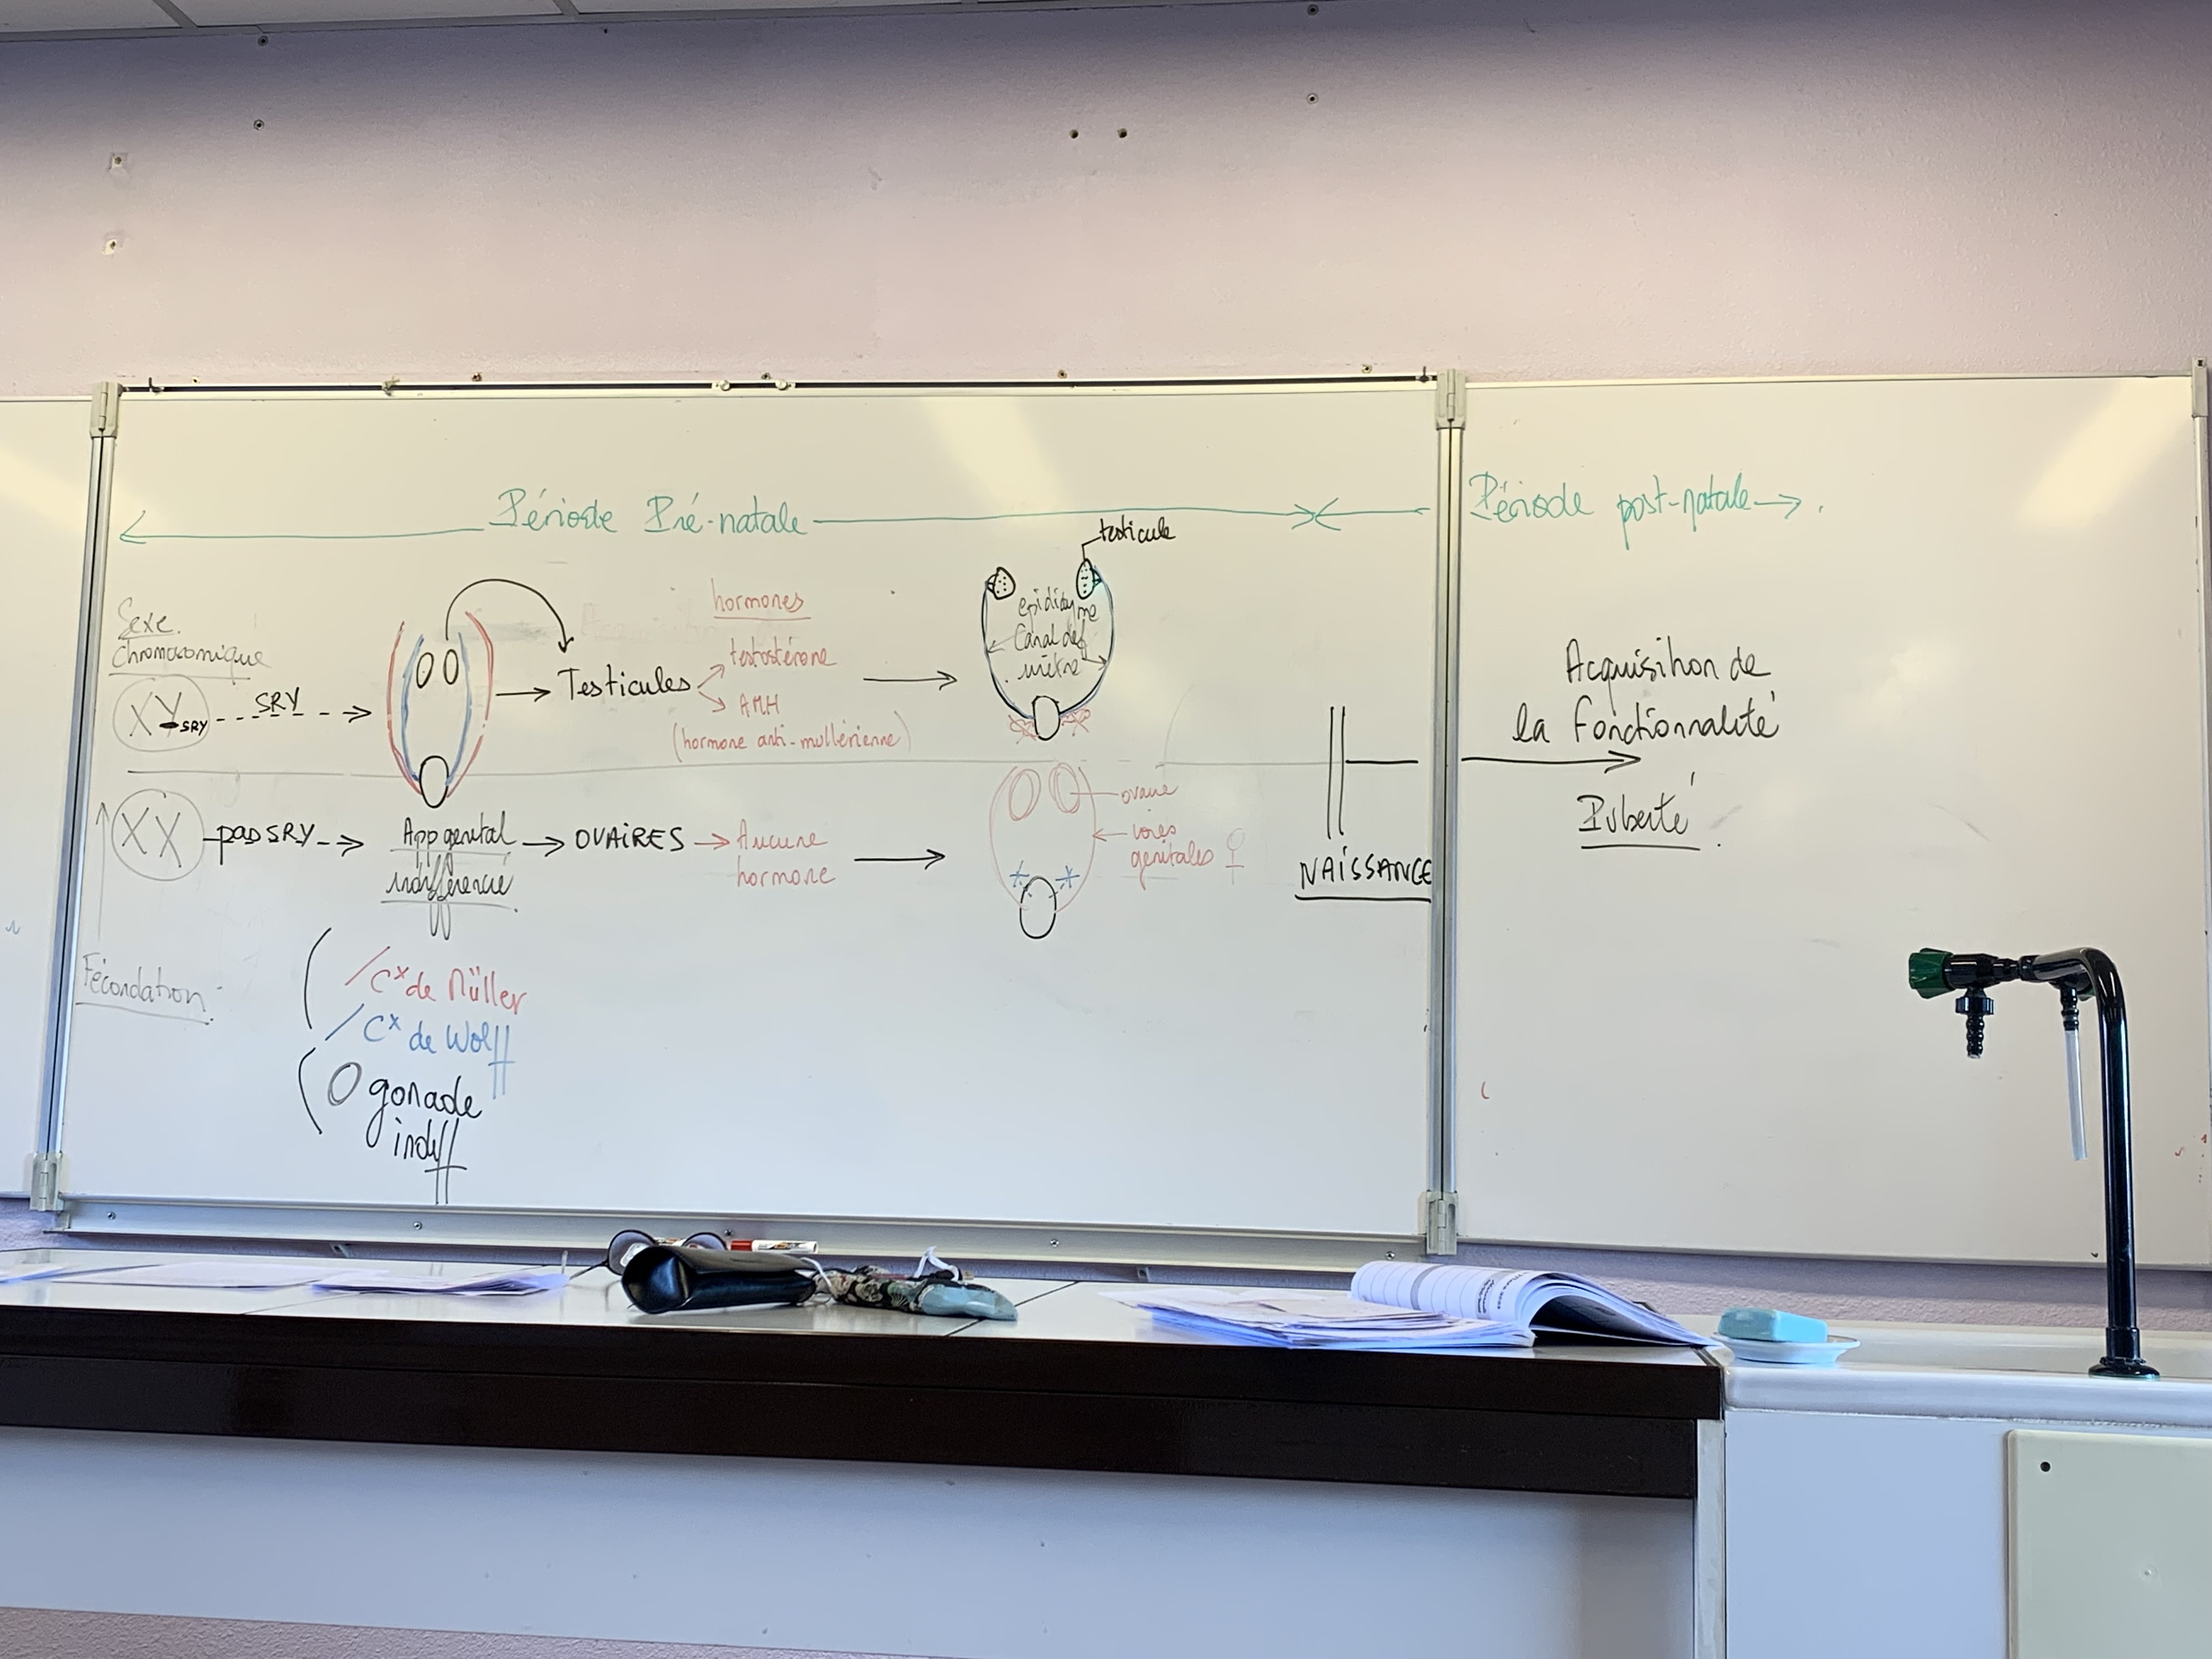 Période Pré-natale
Période post-natale
Sexe
Chromosomique
XY SRY
SRY
Testicules
hormones
testostérone
AMH
(hormone anti-mullérienne)
testicule
epididyme
Canal déf
Acquisition de
la Fonctionnalité
Puberté
XX
pas SRY
App genital
indifférencié
OVAIRES
Aucune
hormone
ovaire
voies
genitales ♀
NAISSANCE
Fécondation
Cx de Müller
Cx de Wolff
gonade
indiff